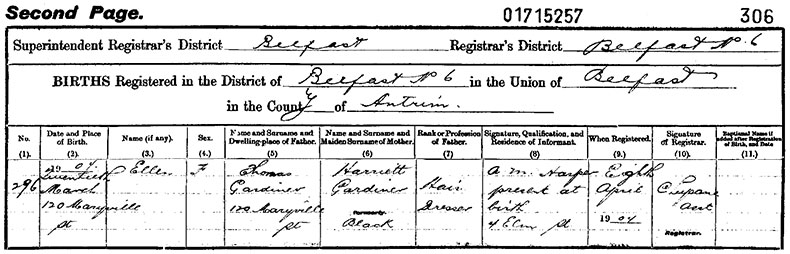 Second Page. 01715257 306
Superintendent Registrar's District Belfast Registrar's District Belfast No. 6
BIRTHS Registered in the District of Belfast No 6 in the Union of Belfast
in the County of Antrim.
No. (1). Date and Place of Birth. (2). Name (if any). (3.) Sex. (4.) Name and Surname and Dwelling-place of Father. (5) Name and Surname and Maiden Surname of Mother. (6) Rank or Profession of Father. (7) Signature, Qualification, and Residence of Informant. (8) When Registered. (9) Signature of Registrar. (10). Baptismal Name if added after Registration of Birth, and Date (11.)
1904 Ellen F Thomas Harriett A. M. Harper Eighth
296 Twentieth Gardiner Gardiner Hair present at April
March 120 Maryville Formerly Dresser birth Asst
120 Maryville st Black 4 Elm st 1904 Registrar.
st